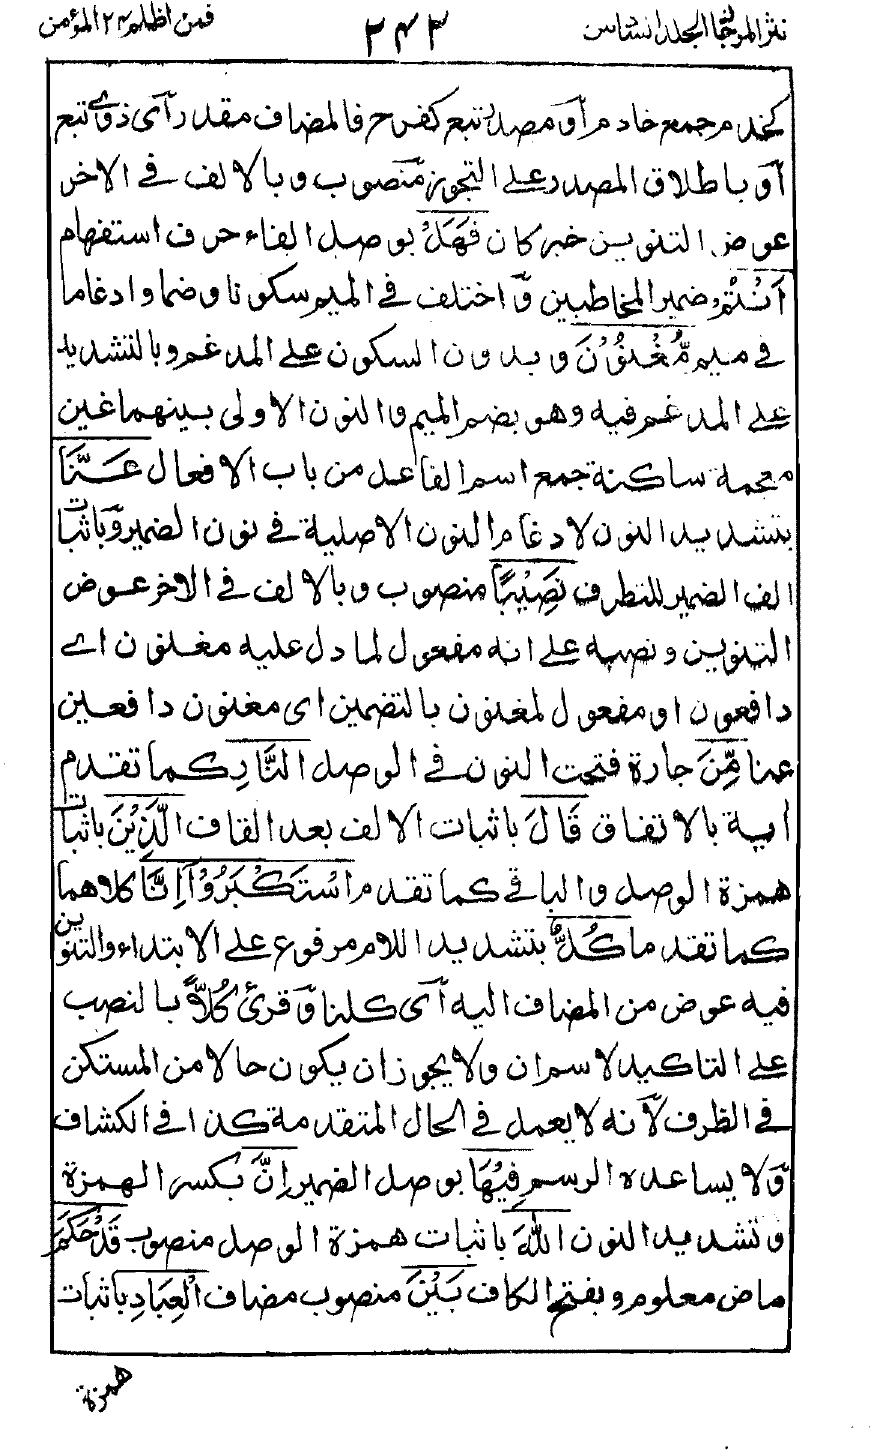 نثر المرجان المجلد السادس ٢٤٣ فمن اظلم ٢٤ المؤمن
كخدم جمع خادم أو مصدر تبع كفرح فالمضاف مقدر أى ذوى تبع
أو باطلاق المصدر على التجوز منصوب وبالالف فى الاخر
عوض التنوين خبر كان فَهَلْ بوصل الفاء حرف استفهام
أَنْتُمْ ضمير المخاطبين وَاختلف فى الميم سكونا وضما وادغاما
فى ميم مُّغْنُوْنَ وبدون السكون على المدغم وبالتشديد
على المدغم فيه وهو بضم الميم والنون الاولى بينهما غين
معجمة ساكنة جمع اسم الفاعل من باب الافعال عَنَّا
بتشديد النون لادغام النون الاصلية فى نون الضمير وباثبات
الف الضمير للتطرف نَصِيْبًا منصوب وبالالف فى الاخر عوض
التنوين ونصبه على انه مفعول لما دل عليه مغنون اے
دافعون او مفعول لمغنون بالتضمين اى مغنون دافعين
عنا مِّنَ جارة فتحت النون فى الوصل النَّارِ كما تقدم
أية بالاتفاق قَالَ باثبات الالف بعد القاف الَّذِيْنَ باثبات
همزة الوصل والباقى كما تقدم اسْتَكْبَرُوْٓا اِنَّا كلاهما
كما تقدما كُلٌّ بتشديد اللام مرفوع على الابتداء والتنوين
فيه عوض من المضاف اليه أى كلنا وَقرئ كُلًّا بالنصب
على التاكيد لاسم ان ولا يجوز ان يكون حالا من المستكن
فى الظرف لأنه لا يعمل فى الحال المتقدمة كذا فى الكشاف
وَلا يساعده الرسم فِيْهَا بوصل الضمير اِنَّ بكسر الهمزة
وتشديد النون اللّٰهَ باثبات همزة الوصل منصوب قَدْ حَكَمَ
ماض معلوم وبفتح الكاف بَيْنَ منصوب مضاف الْعِبَادِ باثبات
همزة